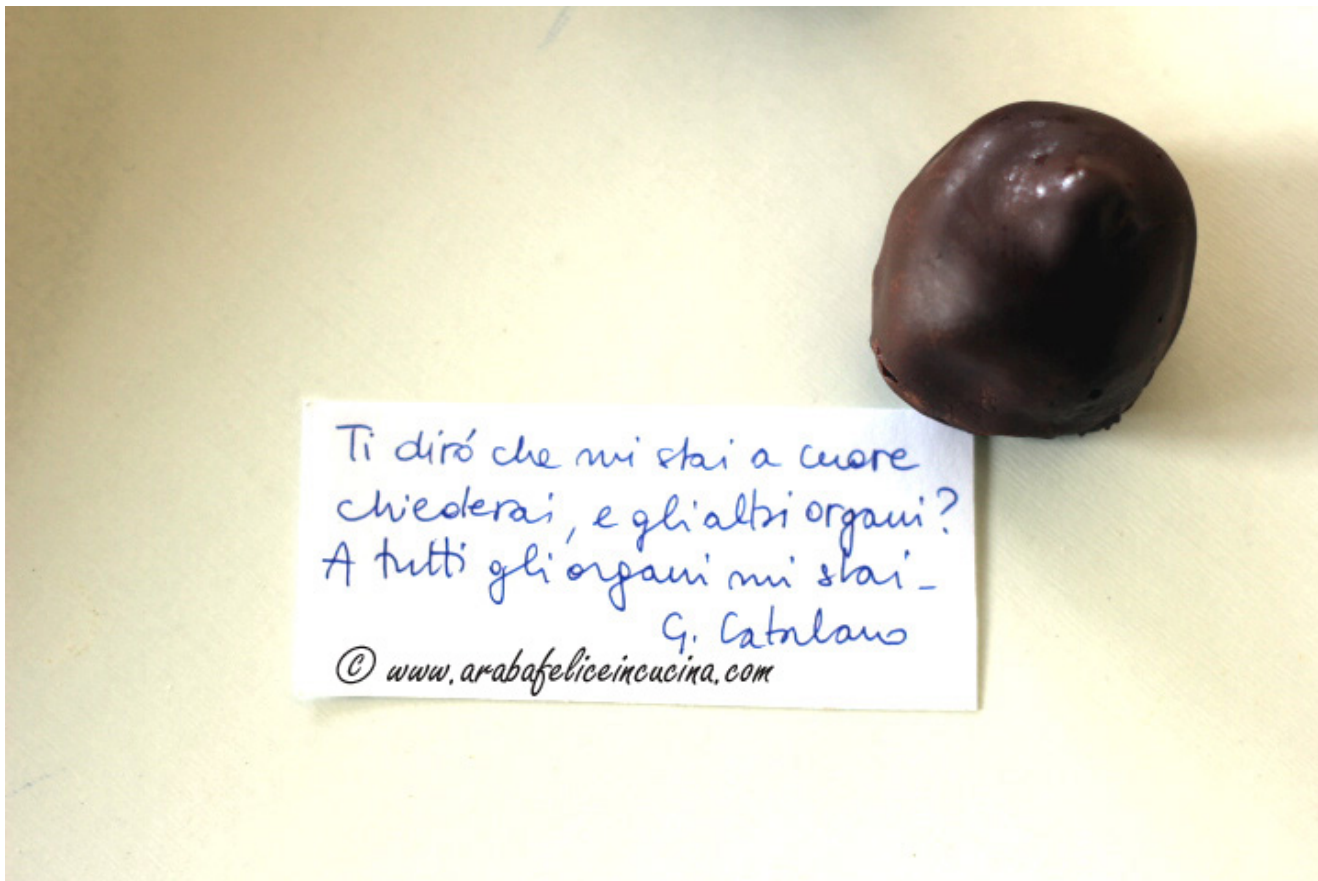 Ti diró che mi stai a cuore
chiederai, e gli altri organi?
A tutti gli organi mi stai -
G. Catalano
© www.arabafeliceincucina.com